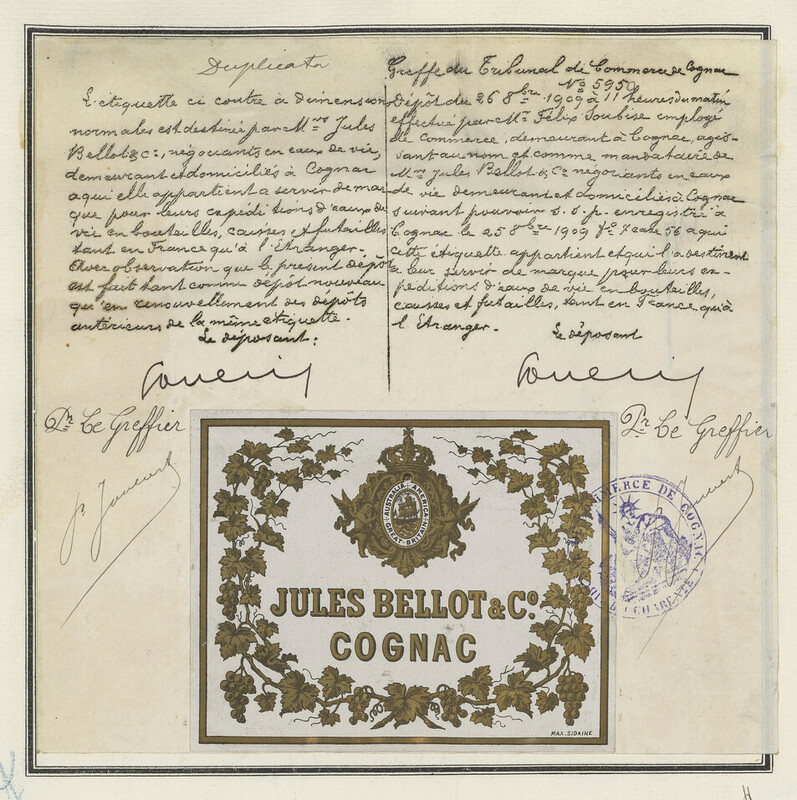 Duplicata
L'étiquette ci contre à dimensions
normales est destinée par Mrs Jules
Bellot & Cie, négociants en eaux de vie,
demeurant et domiciliés à Cognac
a qui elle appartient a servir de mar
que pour leurs expéditions d'eaux de
vie en bouteilles, caisses et futailles
tant en France qu'à l'Etranger.
Avec observation que le présent dépôt
est fait tant comme dépôt nouveau
qu'en renouvellement des dépôts
antérieurs de la même étiquette.
Le déposant:
Pr Le Greffier
Greffe du Tribunal de Commerce de Cognac
No 5950
Dépôt du 26 8bre 1909 à 11 heures du matin
effectué par Mr Félix Soubise employé
de Commerce, demeurant à Cognac, agis-
sant au nom et comme mandataire de
Mrs Jules Bellot & Cie négociants en eaux
de vie demeurant et domiciliés à Cognac
suivant pouvoir s.s.p. enregistré à
Cognac le 25 8bre 1909 fo 7 case 56 a qui
cette étiquette appartient et qui l'a destinent
a leur servir de marque pour leurs ex-
péditions d'eaux de vie en bouteilles,
caisses et futailles, tant en France qu'à
l'Etranger.
Le déposant
Pr Le Greffier
AUSTRALIA AMERICA
GREAT-BRITAIN
JULES BELLOT & Co.
COGNAC
MAX. SIDAINE
MERCE DE COGNAC
CHARENTE